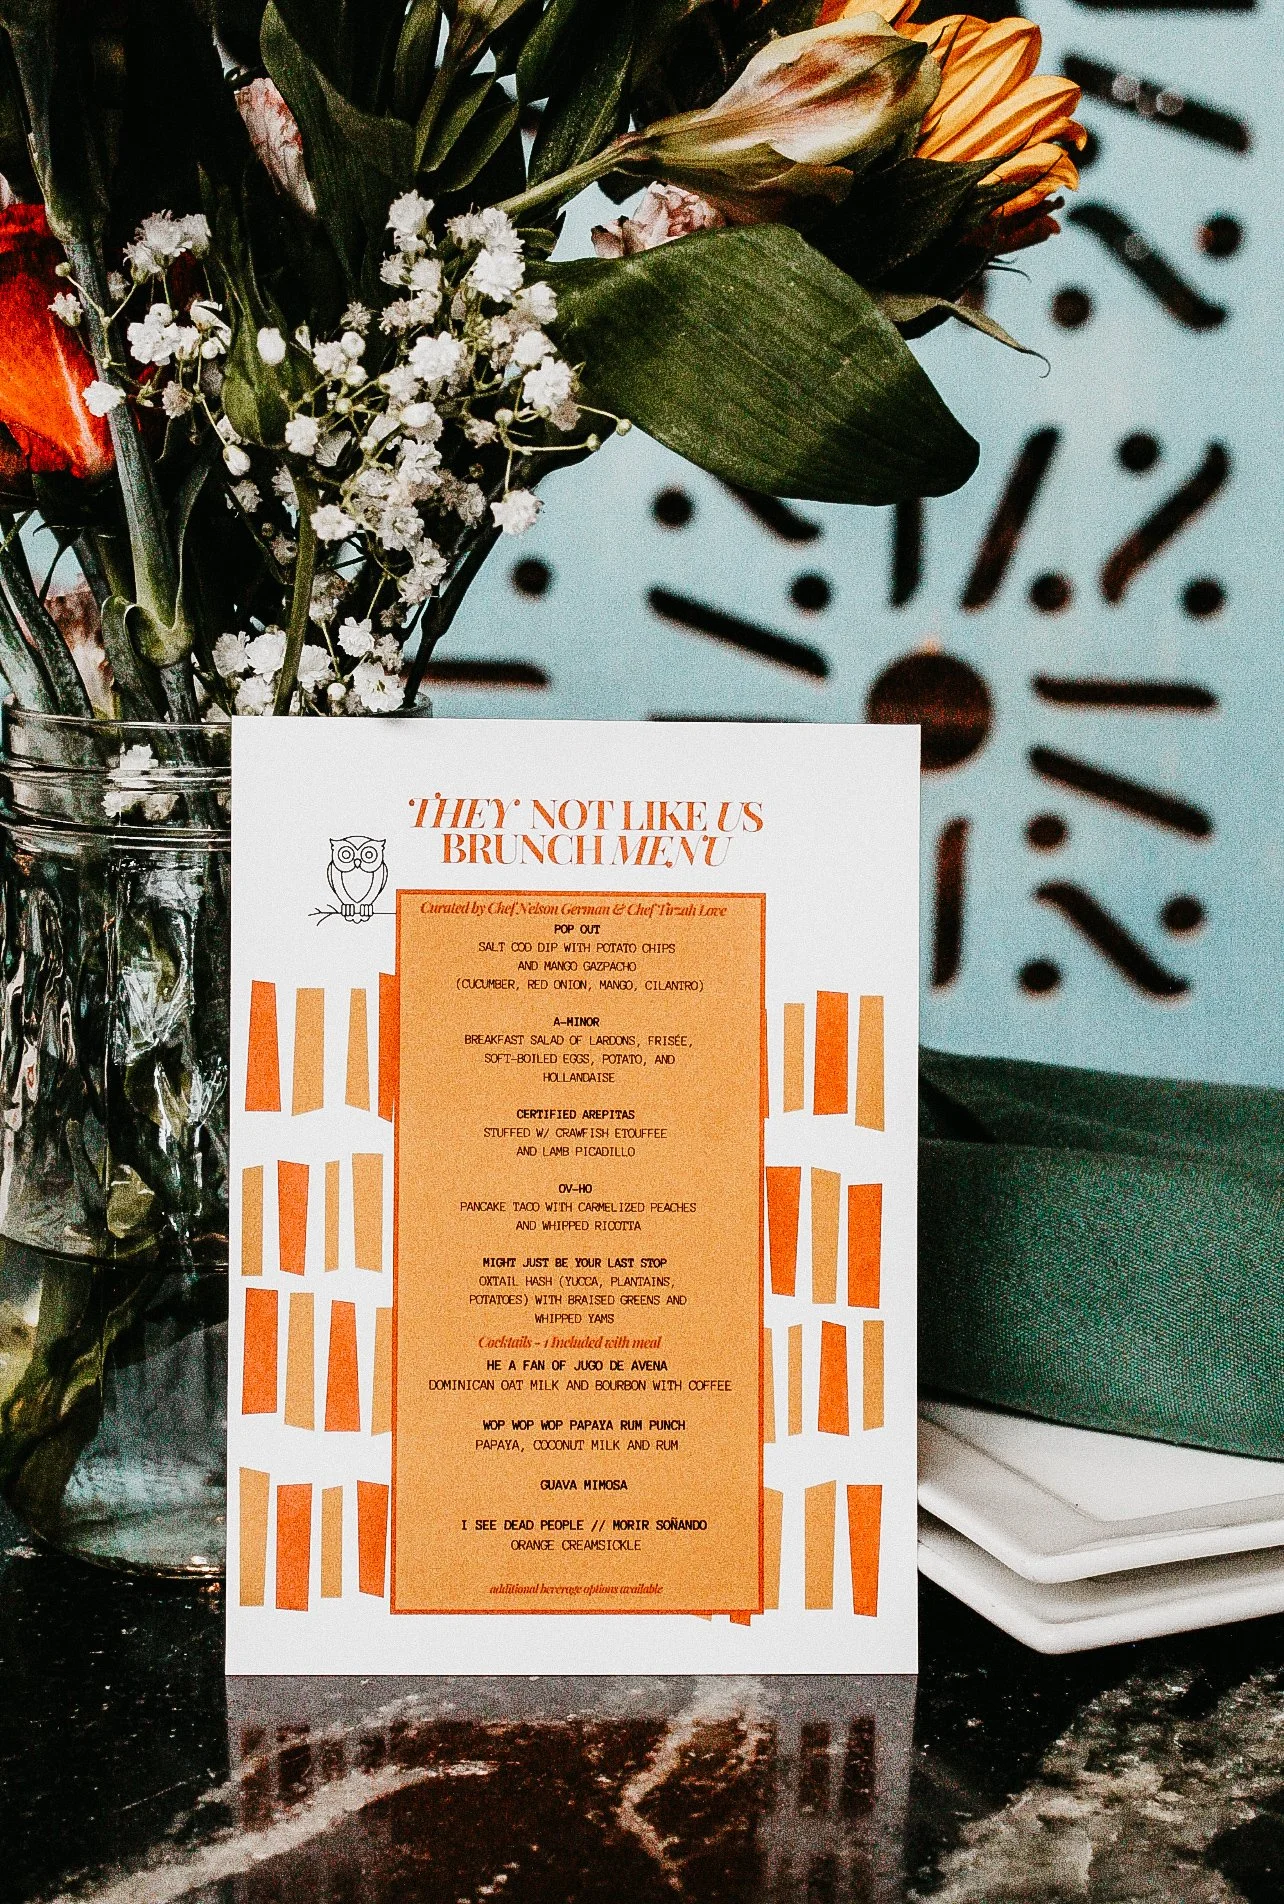 THEY NOT LIKE US
BRUNCH MENU
Curated by Chef Nelson German & Chef Tirzah Love
POP OUT
SALT COD DIP WITH POTATO CHIPS
AND MANGO GAZPACHO
(CUCUMBER, RED ONION, MANGO, CILANTRO)
A-MINOR
BREAKFAST SALAD OF LARDONS, FRISÉE,
SOFT-BOILED EGGS, POTATO, AND
HOLLANDAISE
CERTIFIED AREPITAS
STUFFED W/ CRAWFISH ETOUFFEE
AND LAMB PICADILLO
OV-HO
PANCAKE TACO WITH CARMELIZED PEACHES
AND WHIPPED RICOTTA
MIGHT JUST BE YOUR LAST STOP
OXTAIL HASH (YUCCA, PLANTAINS,
POTATOES) WITH BRAISED GREENS AND
WHIPPED YAMS
Cocktails - 1 Included with meal
HE A FAN OF JUGO DE AVENA
DOMINICAN OAT MILK AND BOURBON WITH COFFEE
WOP WOP WOP PAPAYA RUM PUNCH
PAPAYA, COCONUT MILK AND RUM
GUAVA MIMOSA
I SEE DEAD PEOPLE // MORIR SOÑANDO
ORANGE CREAMSICKLE
additional beverage options available